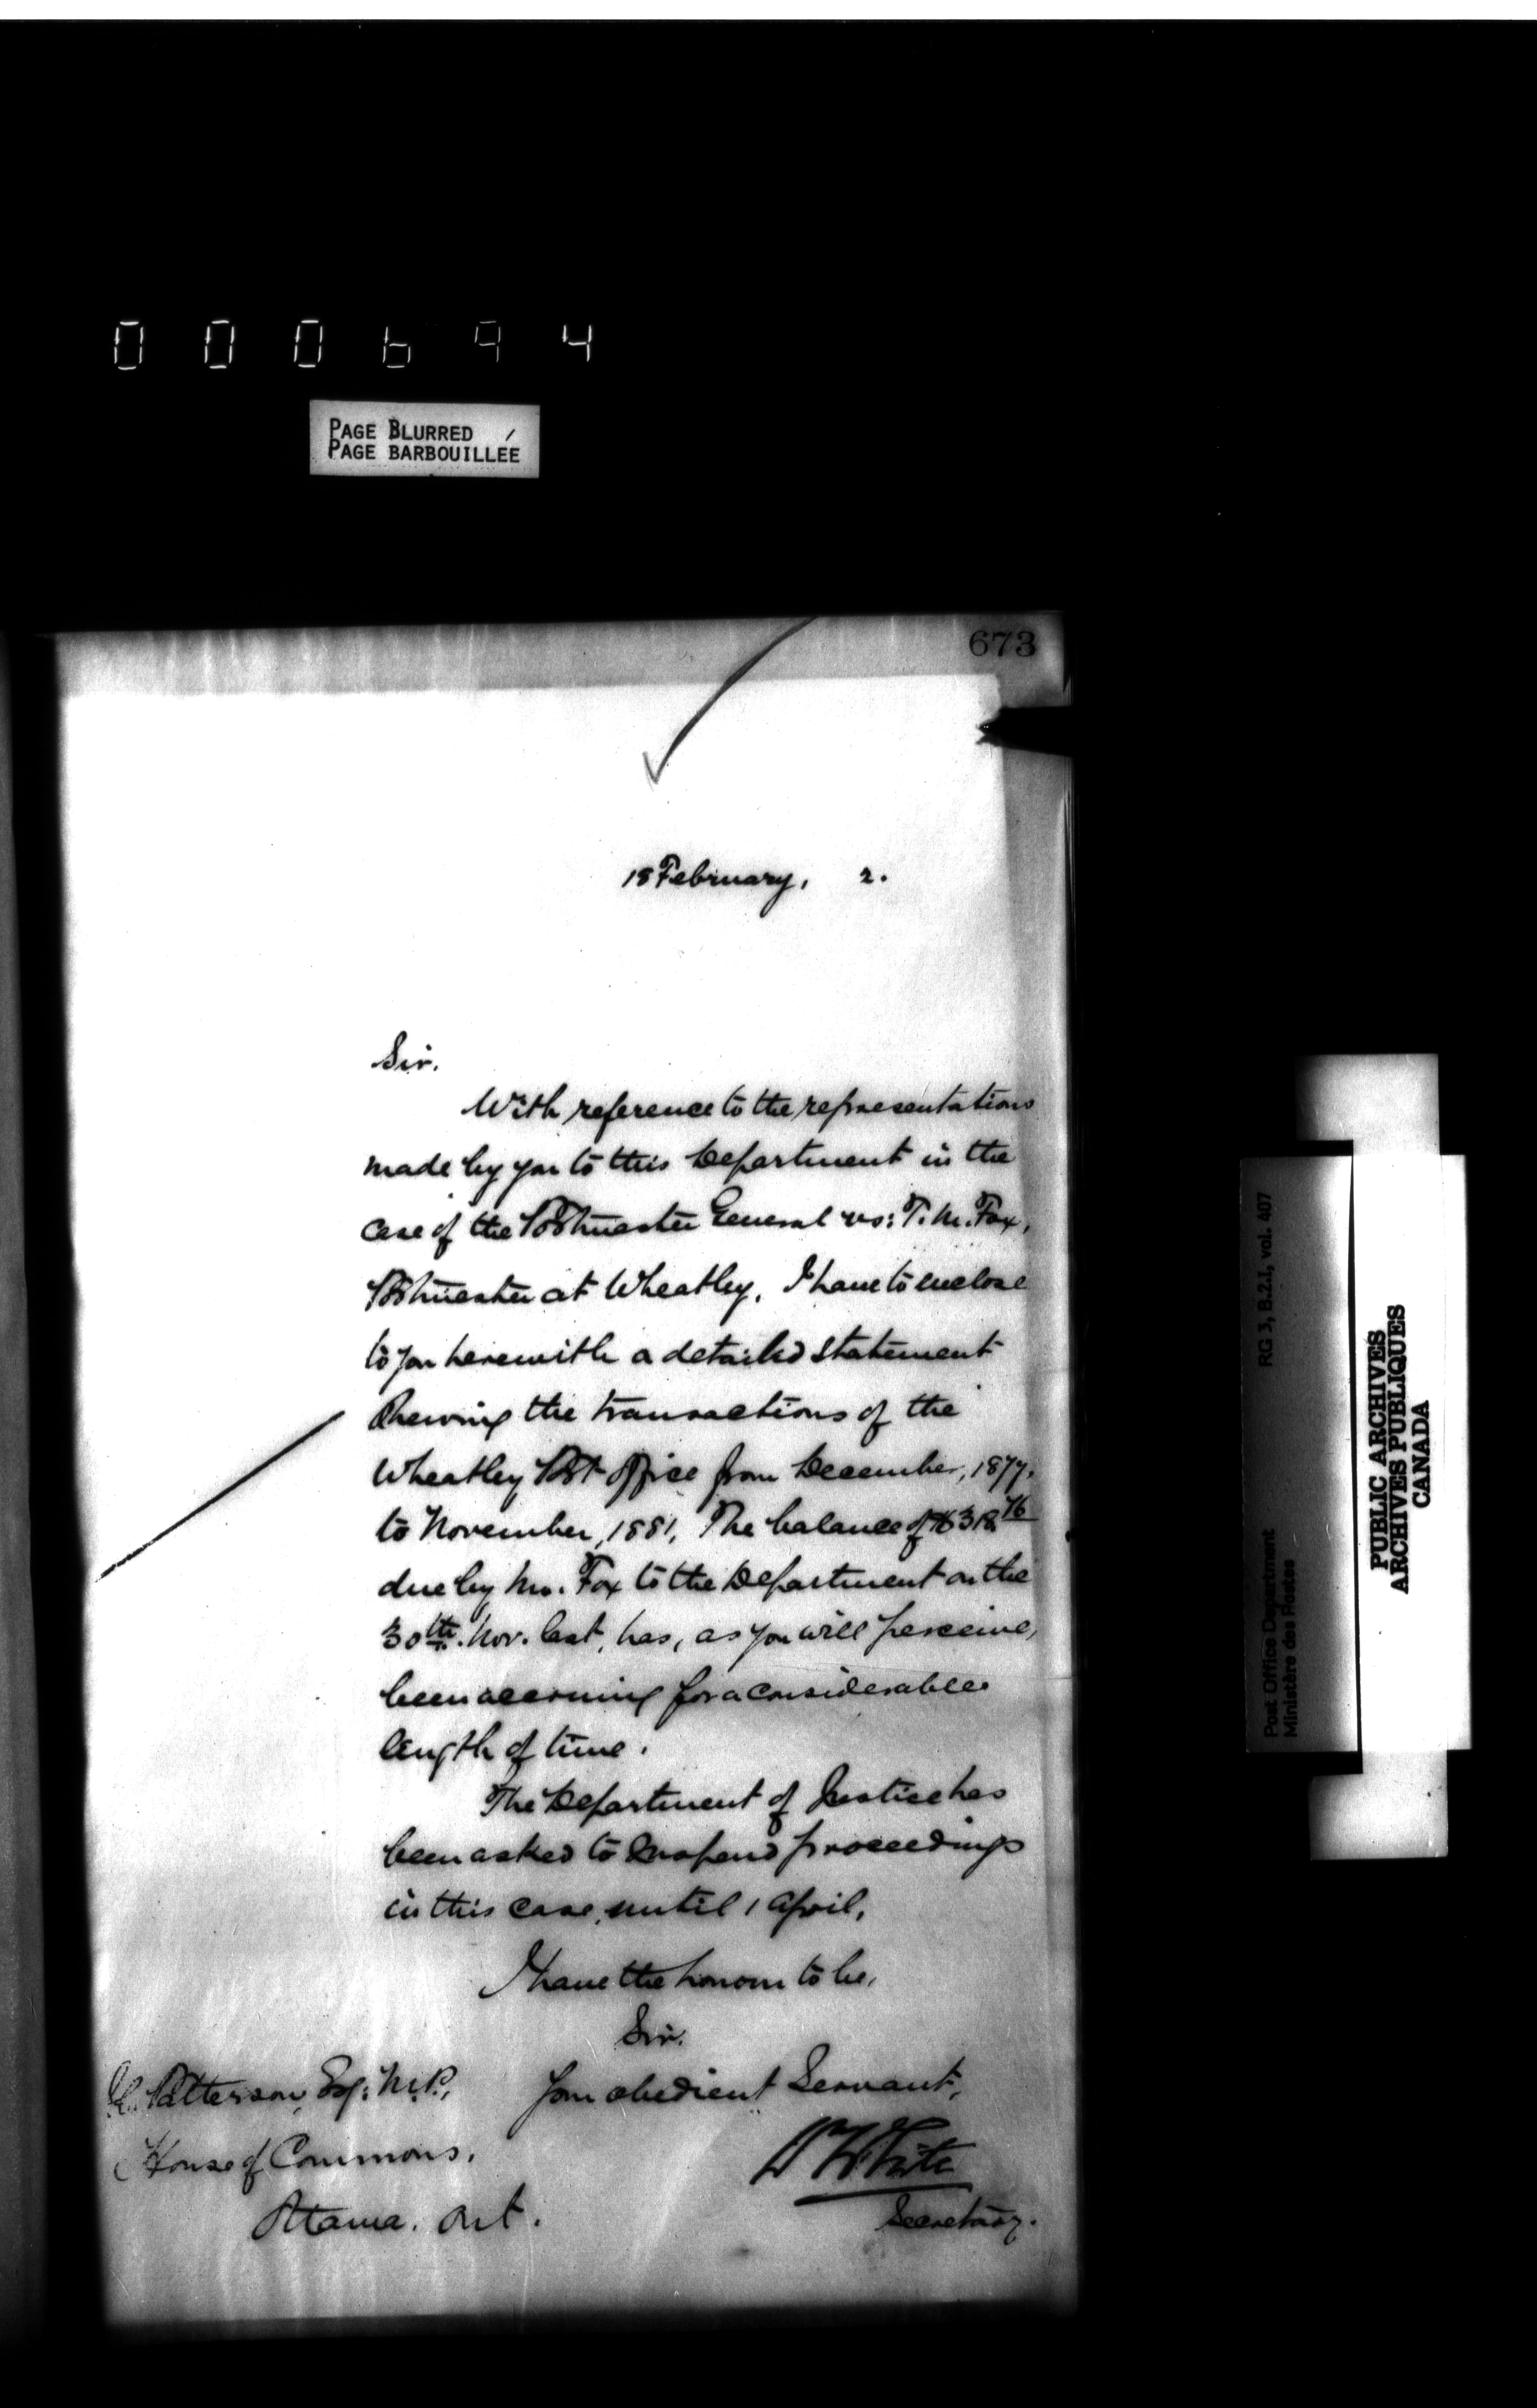 000694
PAGE BLURRED
PAGE BARBOUILLÉE
673
18 February, 2.
Sir.
With reference to the representations
made by you to this Department in the
case of the Postmaster General vs: T. M. Fox,
Postmaster at Wheatley, I have to enclose
to you herewith a detailed statement
shewing the transactions of the
Wheatley Post Office from December, 1877,
to November, 1881. The balance of
due by Mr. Fox to the Department on the
30th. Nov. last, has, as you will perceive,
been accruing for a considerable
length of time.
The Department of Justice has
been asked to suspend proceedings
in this case, until 1 April,
I have the honour to be,
Sir.
Your obedient Servant,
Patterson, Esq: M.P.,
House of Commons,
Ottawa. Ont.
White
Secretary.
RG 3, B.2.1, vol. 407
Post Office Department
Ministère des Postes
PUBLIC ARCHIVES
ARCHIVES PUBLIQUES
CANADA